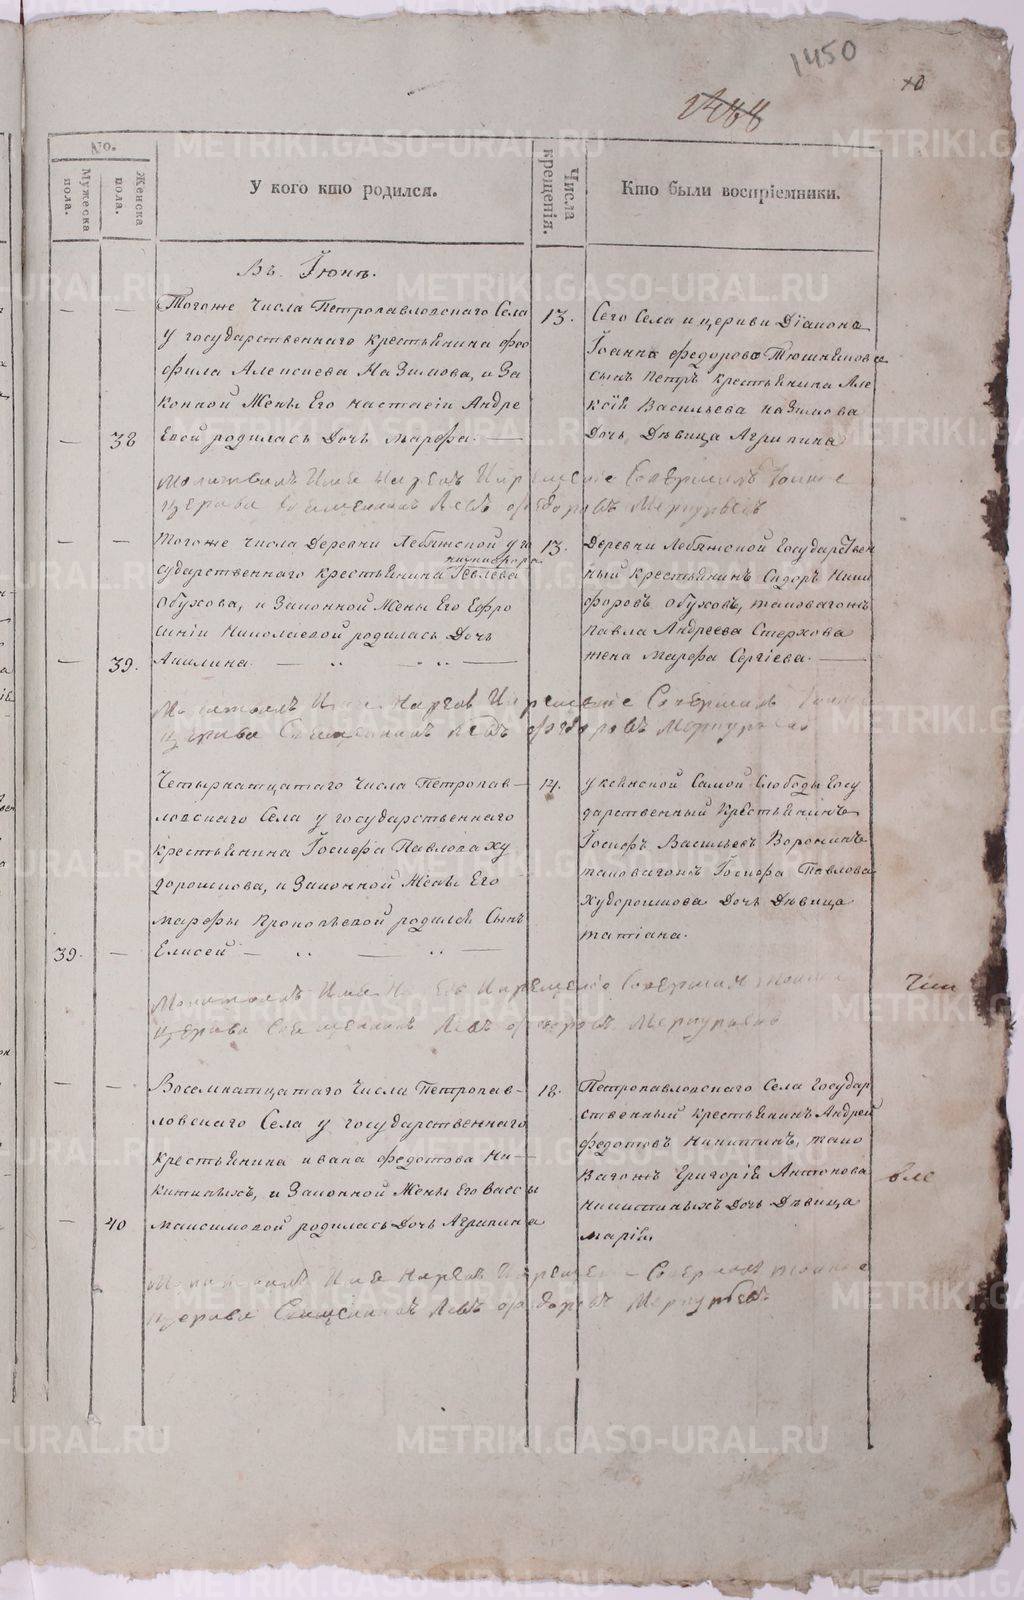 1450
10
1488
No.
Мужеска пола.
Женска пола.
У кого кто родился.
Числа крещенія.
Кто были воспріемники.
Въ Іюнѣ.
Тогоже числа Петропавловскаго Села
у государственнаго крестьянина Фео
фила Алексиева Назимова, и За
конной Жены Его Настасіи Андре
38 евой родилась Дочь Марфа.
13.
Сего Села и церкви Діакона
Іоанна Федорова Тюшнякова
сынъ Петръ крестьянина Але
ксія Васильева Назимова
Дочь Дѣвица Агрипина
Молитвилъ Имя Нарекъ И Крещеніе Совершилъ тоиже
церкви Священникъ Левъ Федоровъ Меркурьевъ
Тогоже числа Деревни Лебяжской у го
сударственнаго крестьянина Иевлева
никифора
Обухова, и Законной Жены Его Ефро
синіи Николаевой родилась Дочь
39. Акилина.
13.
Деревни Лебяжской Государствен
ный крестьянинъ Сидоръ Ники
форовъ Обуховъ, таковагожъ
Павла Андреева Стерхова
жена Марфа Сергіева.
Молитвилъ Имя Нарекъ И Крещеніе Совершилъ тоиже
церкви Священникъ Левъ Федоровъ Меркурьевъ
Четырнатцатаго числа Петропав-
ловскаго Села у государственнаго
крестьянина Іосифа Павлова Ху
дорошкова, и Законной Жены Его
Марфы Прокопьевой родился Сынъ
39. Елисей
14.
Уксянской Самой Слободы Госу
дарственный Крестьянинъ
Іосифъ Васильевъ Воронинъ
таковагожъ Іосифа Павлова
Худорошкова Дочь Дѣвица
татіана.
Молитвилъ Имя Нарекъ И Крещеніе Совершилъ тоиже
церкви Священникъ Левъ Федоровъ Меркурьевъ
Восемнатцатаго числа Петропав-
ловскаго Села у государственнаго
крестьянина Ивана Федотова Ни-
китиныхъ, и Законной Жены Его Вассы
40 Максимовой родилась Дочь Агрипина
18.
Петропавловскаго Села Государ
ственный крестьянинъ Андрей
Федотовъ Никитинъ, тако
вагожъ Григорія Антонова
Никитиныхъ Дочь Дѣвица
Марія
Молитвилъ Имя Нарекъ И Крещеніе Совершилъ тоиже
церкви Священникъ Левъ Федоровъ Меркурьевъ
METRIKI.GASO-URAL.RU